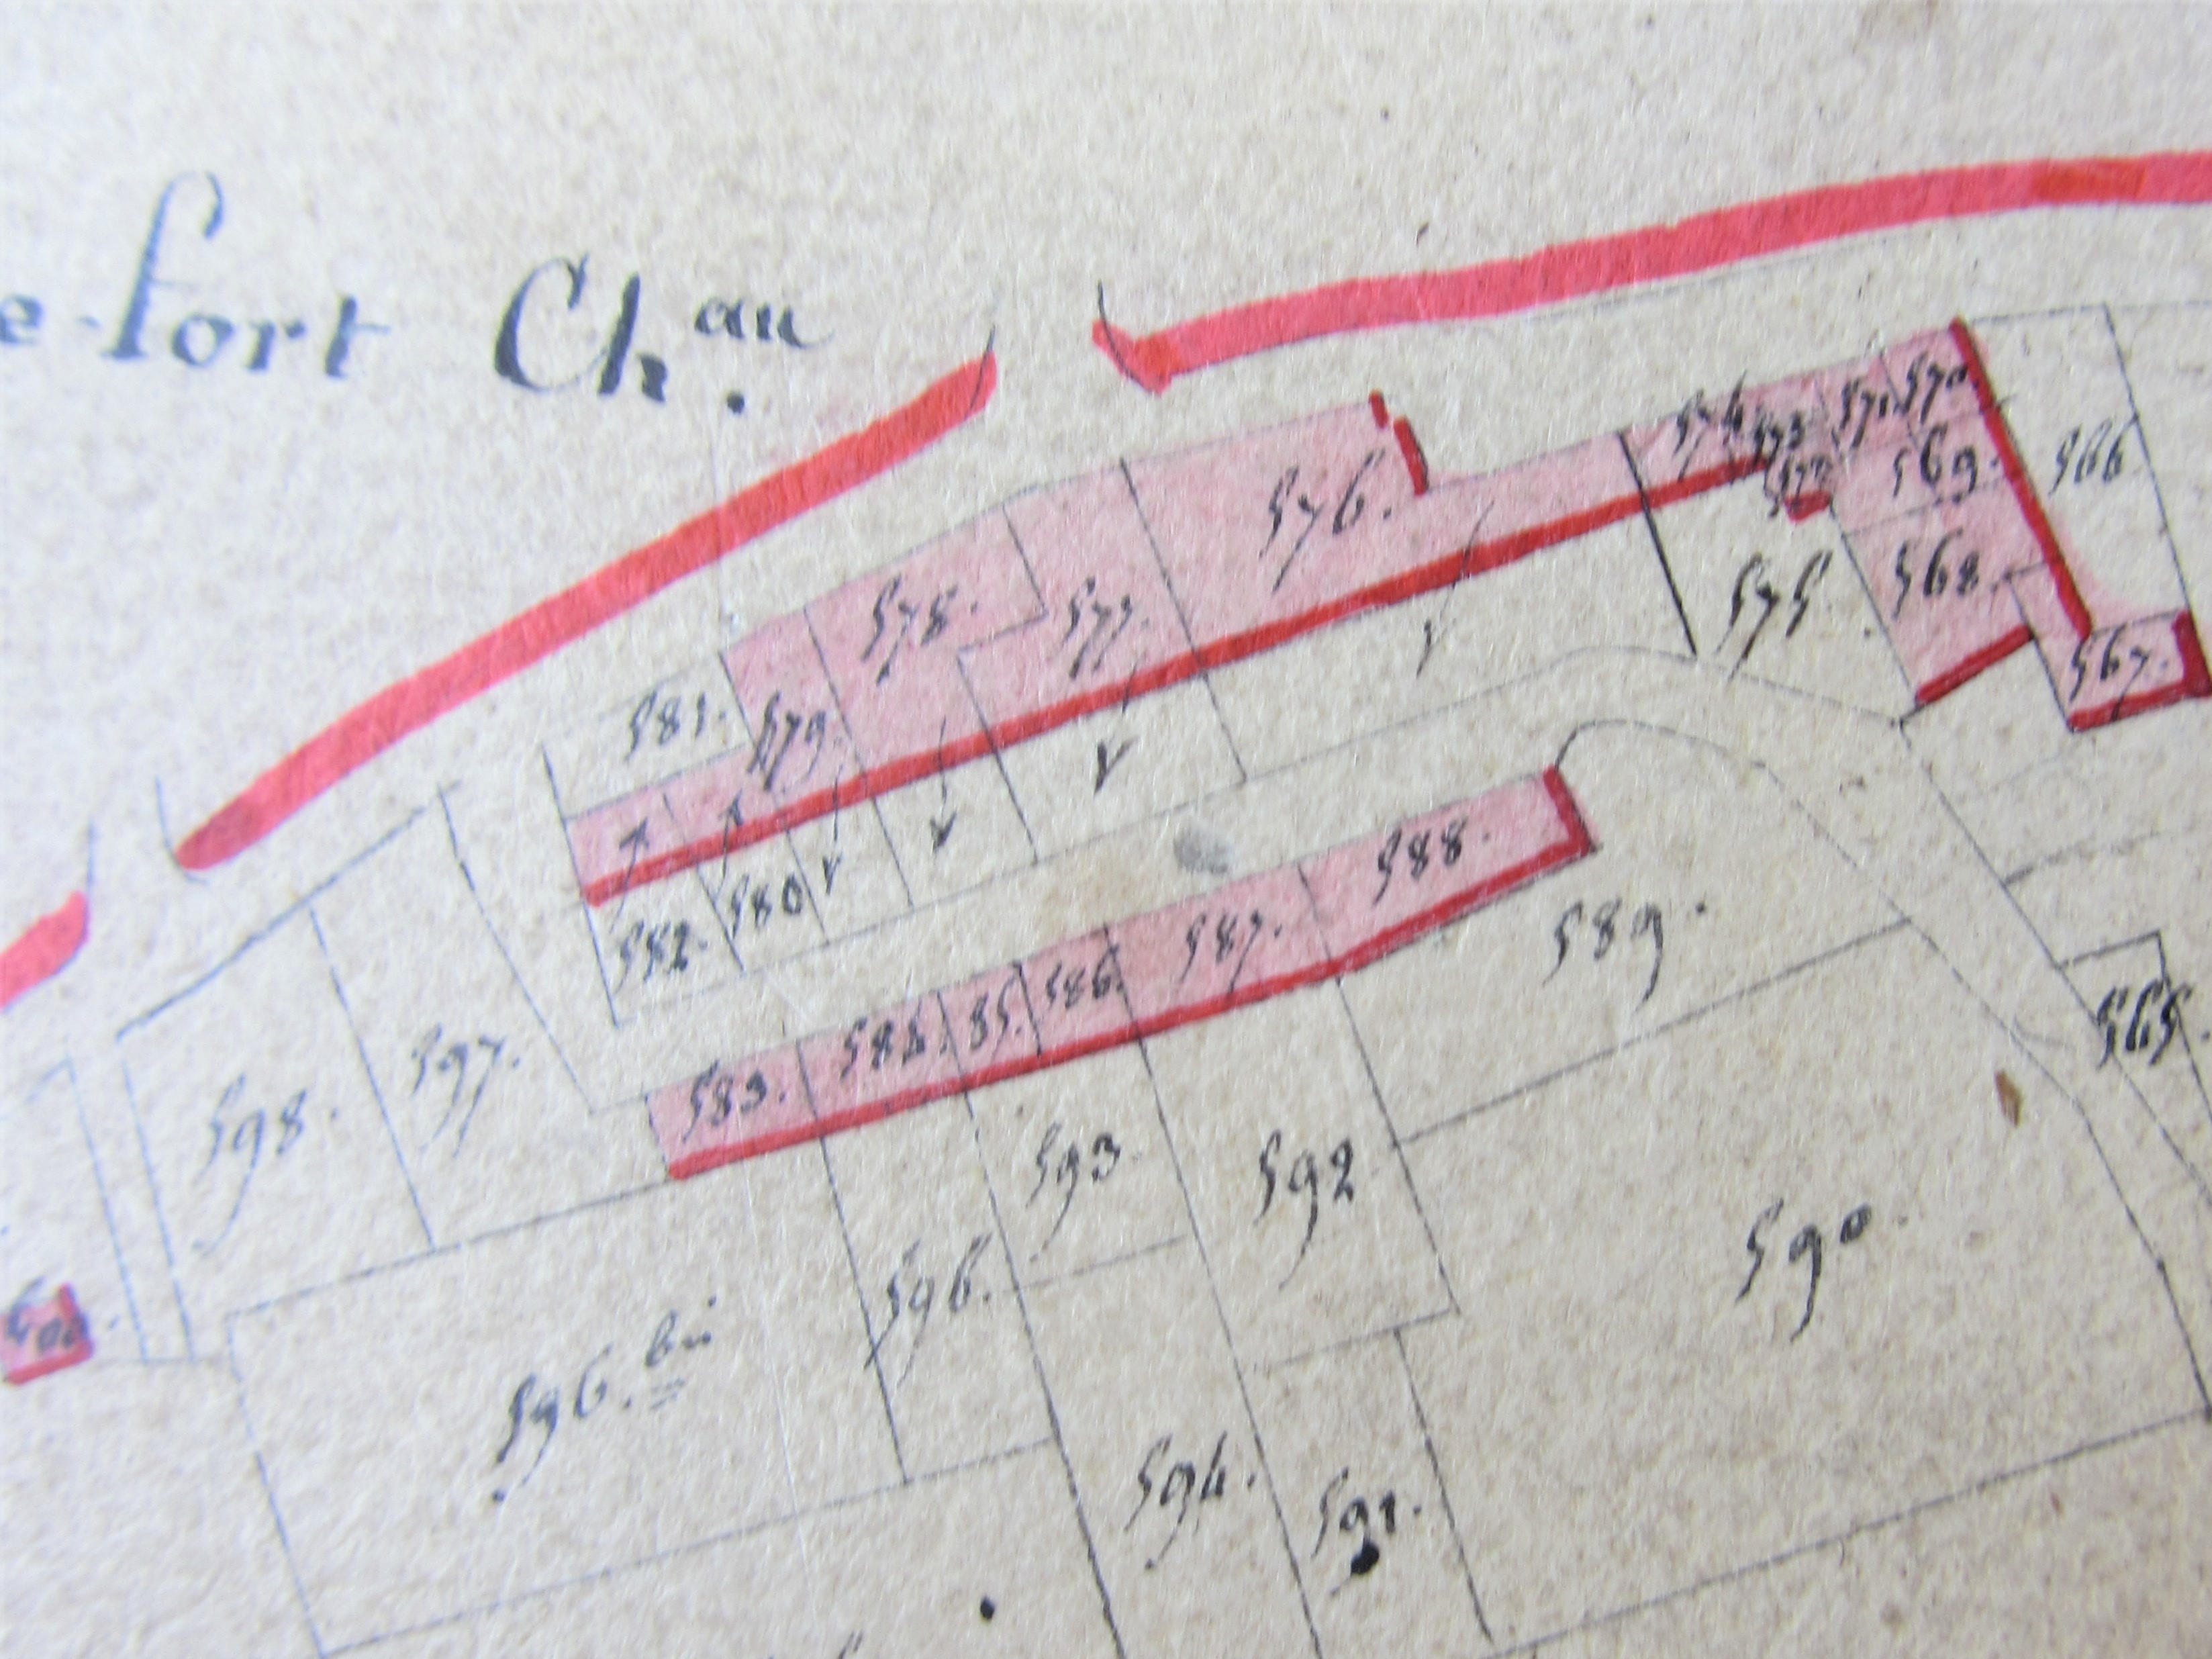 e-fort Ch.au
570.
571.
574.
573
566
569.
576.
572
568.
575.
578.
577.
567.
581.
579.
588.
580
582.
587.
589.
586.
585.
583.
565.
597.
598.
593.
592
590.
596.
596. bis
594.
591.